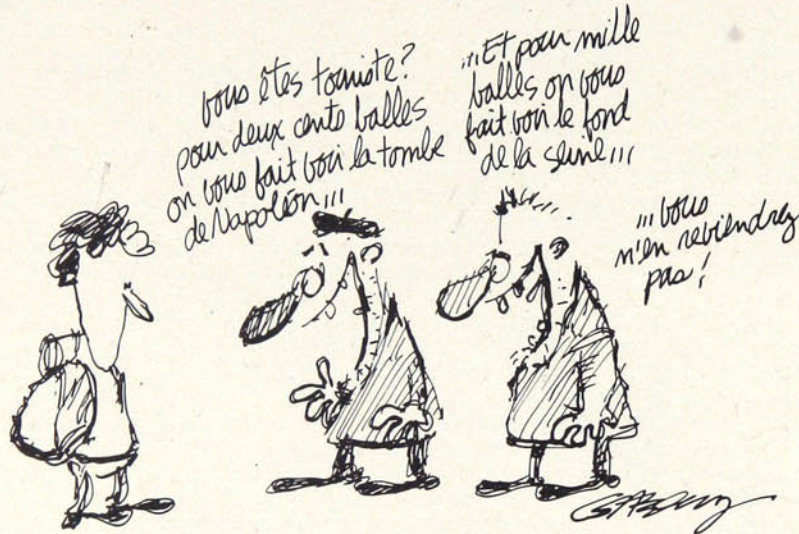 vous êtes touriste?
pour deux cents balles
on vous fait voir la tombe
de Napoléon...
...Et pour mille
balles on vous
fait voir le fond
de la seine...
...vous
n'en reviendrez
pas!